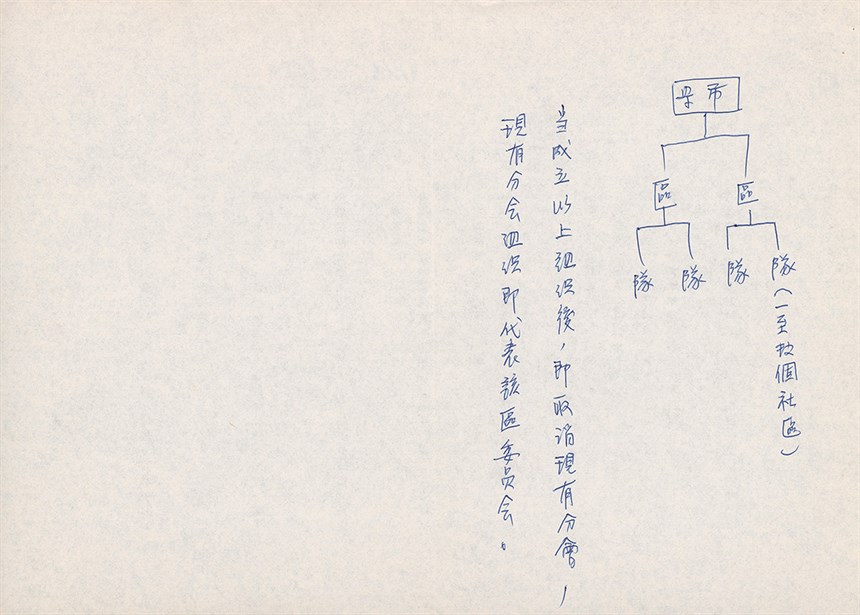 县市
區 區
隊 隊 隊 隊(一至数個社區)
当成立以上組织後，即取消現有分會，
現有分会組织即代表該區委员会。